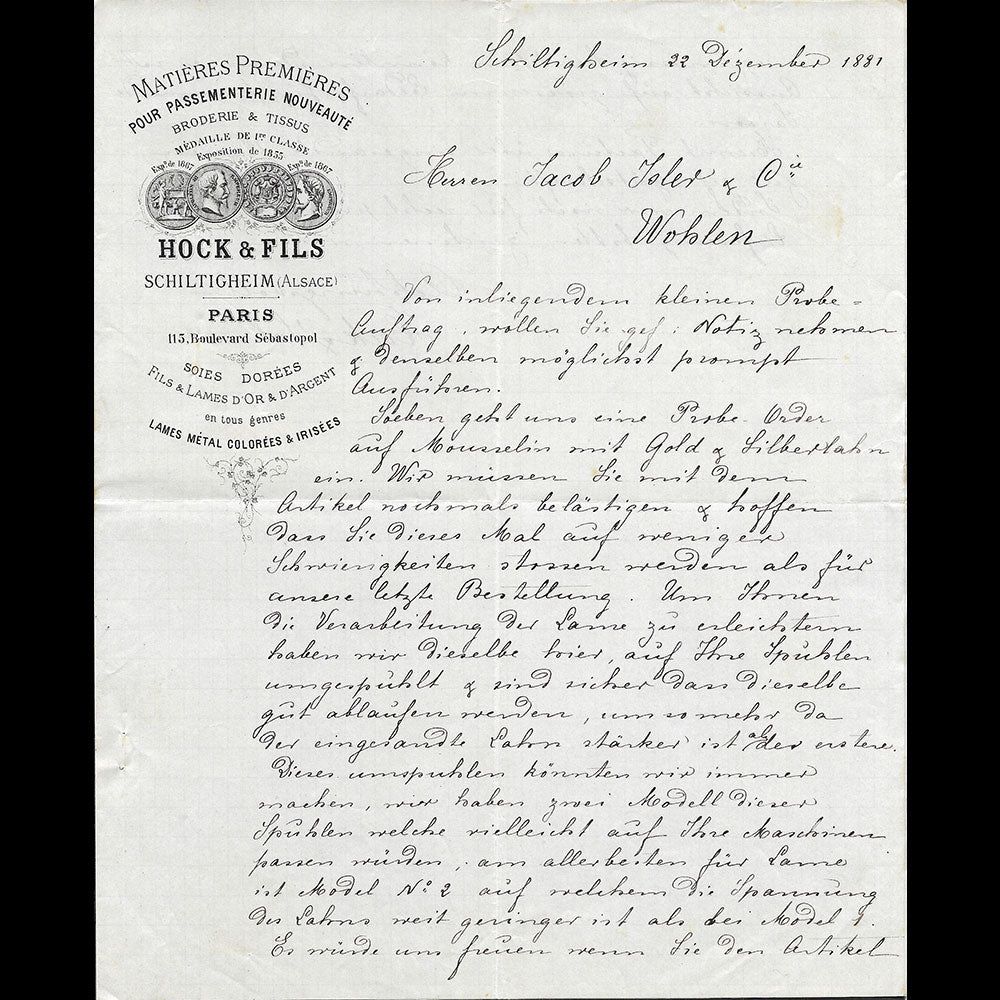 MATIÈRES PREMIÈRES
POUR PASSEMENTERIE NOUVEAUTÉ
BRODERIE & TISSUS
MÉDAILLE DE 1re CLASSE
Exposition de 1855
Expon de 1867 Expon de 1867
HOCK & FILS
SCHILTIGHEIM (ALSACE)
PARIS
115. Boulevard Sébastopol
SOIES DORÉES
FILS & LAMES D'OR & D'ARGENT
en tous genres
LAMES MÉTAL COLORÉES & IRISÉES
Schiltigheim 22 Dézember 1881
Herren Jacob Isler & Cie
Wohlen
Von inliegendem kleinen Probe-
Auftrag, wollen Sie gef: Notiz nehmen
& denselben möglichst prompt
Ausführen.
Soeben geht uns eine Probe-Order
auf Mousselin mit Gold & Silberlahn
ein. Wir müssen Sie mit dem
Artikel nochmals belästigen & hoffen
dass Sie dieses Mal auf weniger
Schwierigkeiten stossen werden als für
unsere letzte Bestellung. Um Ihnen
die Verarbeitung der Lame zu erleichtern
haben wir dieselbe hier, auf Ihre Spühlen
umgespühlt & sind sicher dass dieselbe
gut ablaufen werden, um so mehr da
der eingesandte Lahn stärker ist als der erstere.
Dieses umspuhlen könnten wir immer
machen, wir haben zwei Modell dieser
Spühlen welche vielleicht auf Ihre Maschinen
passen würden, am allerbesten für Lame
ist Model No 2 auf welchem die Spannung
des Lahns weit geringer ist als bei Model 1.
Es würde uns freuen wenn Sie den Artikel